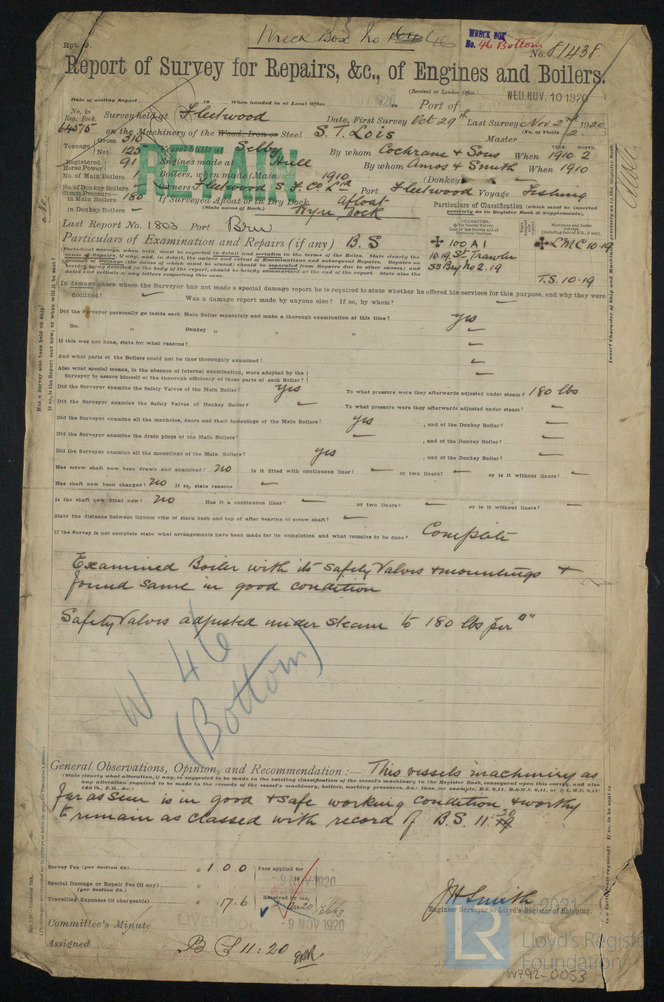 Wreck Box No 46
WRECK BOX
No. 46 Bottom
Rpt. 9.
No. 81438
Report of Survey for Repairs, &c., of Engines and Boilers.
(Received at London Office
WED. NOV. 10 1920
Date of writing Report
19
When handed in at Local Office
Port of
No. in Reg. Book.
64575
Survey held at Fleetwood
Date, First Survey Oct 29th Last Survey Nov 2nd 1920
(No. of Visits 2
on the Machinery of the Wood, Iron or Steel S.T. Lois
Master
Tonnage
Gross 310
Net 125
Vessel built at Selby
By whom Cochrane & Sons When 1910. 2
Registered Horse Power 91
Engines made at Hull
By whom Amos & Smith When 1910
No. of Main Boilers 1
Boilers, when made (Main) 1910
(Donkey)
No. of Donkey Boilers
Owners Fleetwood S. F. Co Ltd Port Fleetwood Voyage Fishing
Steam Pressure in Main Boilers 180
If Surveyed Afloat or in Dry Dock Afloat
(State name of Dock.) Wyre Dock
in Donkey Boilers
RETAIN
Particulars of Classification (which must be inserted precisely as in Register Book & Supplements).
Last Report No. 1803 Port Brw
Particulars of Examination and Repairs (if any) B.S
✠ 100 A1
10.19 St Trawler
SS Bry No 2.19
✠ LMC 10.19
T.S. 10-19
In damage cases where the Surveyor has not made a special damage report he is required to state whether he offered his services for this purpose, and why they were
declined?
Was a damage report made by anyone else? If so, by whom?
Did the Surveyor personally go inside each Main Boiler separately and make a thorough examination at this time? yes
Do. " Donkey " " "
If this was not done, state for what reasons?
And what parts of the Boilers could not be thus thoroughly examined?
Also what special means, in the absence of internal examination, were adopted by the
Surveyor to assure himself of the thorough efficiency of those parts of each Boiler?
Did the Surveyor examine the Safety Valves of the Main Boiler? yes To what pressure were they afterwards adjusted under steam? 180 lbs
Did the Surveyor examine the Safety Valves of Donkey Boiler? To what pressure were they afterwards adjusted under steam?
Did the Surveyor examine all the manholes, doors and their fastenings of the Main Boilers? yes , and of the Donkey Boiler?
Did the Surveyor examine the drain plugs of the Main Boilers? , and of the Donkey Boiler?
Did the Surveyor examine all the mountings of the Main Boilers? yes , and of the Donkey Boiler?
Has screw shaft now been drawn and examined? no Is it fitted with continuous liner? or two liners? or is it without liners?
Has shaft now been changed? no If so, state reasons
Is the shaft now fitted new? no Has it a continuous liner? or two liners? or is it without liners?
State the distance between lignum vitæ of stern bush and top of after bearing of screw shaft?
If the Survey is not complete state what arrangements have been made for its completion and what remains to be done? Complete
Examined Boiler with its safety valves & mountings &
found same in good condition
Safety Valves adjusted under steam to 180 lbs per □"
W 46
(Bottom)
General Observations, Opinion, and Recommendation:— This vessels machinery as
(State clearly what alteration, if any, is suggested to be made in the existing classification of the vessel's machinery in the Register Book, consequent upon this survey, and also
far as seen is in good & safe working condition & worthy
to remain as classed with record of B.S. 11.20
Survey Fee (per Section 28) £ 1 0 0
Fees applied for
9 NOV 1920
Special Damage or Repair Fee (if any)
(per Section 28.)
Travelling Expenses (if chargeable) £ 17.6
Received by me,
9 NOV 1920
J H Smith
Engineer Surveyor to Lloyd's Register of Shipping.
Committee's Minute
Assigned
B S 11:20
2021
LR
Lloyd's Register
Foundation
W792-0053